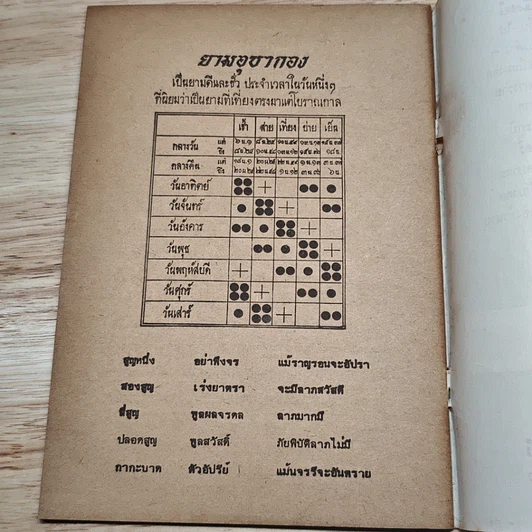 ยามอุบากอง
เป็นยามดีและชั่ว ประจำเวลาในวันหนึ่งๆ
ที่นิยมว่าเป็นยามที่เที่ยงตรงมาแต่โบราณกาล
เช้า สาย เที่ยง บ่าย เย็น
กลางวัน แต่ ถึง
กลางคืน แต่ ถึง
วันอาทิตย์
วันจันทร์
วันอังคาร
วันพุธ
วันพฤหัสบดี
วันศุกร์
วันเสาร์
สูญหนึ่ง อย่าพึงจร แม้ราญรอนจะอัปรา
สองสูญ เร่งยาตรา จะมีลาภสวัสดี
สี่สูญ พูลผลจรดล ลาภมากมี
ปลอดสูญ พูลสวัสดิ์ ภัยพิบัติลาภไม่มี
กากะบาด ตัวอัปรีย์ แม้นจรรีจะอันตราย